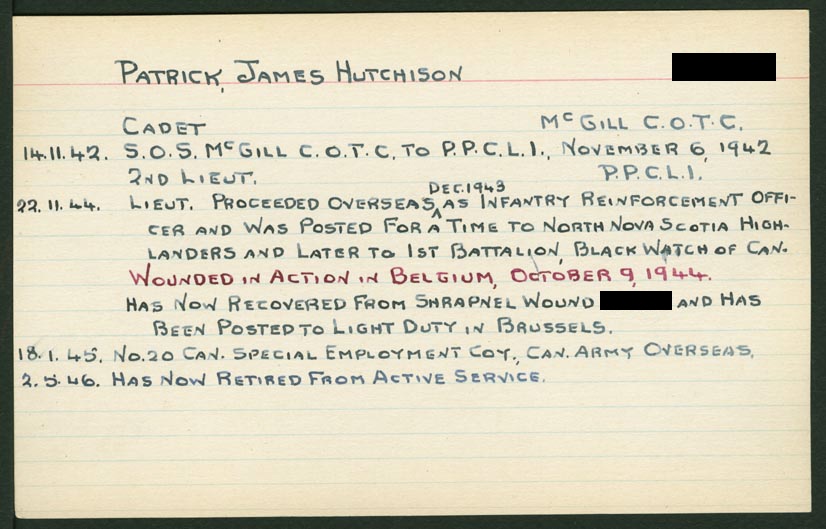 PATRICK, JAMES HUTCHISON
CADET McGILL C.O.T.C.
14.11.42. S.O.S. McGILL C.O.T.C. TO P.P.C.L.I., NOVEMBER 6, 1942
2ND LIEUT. P.P.C.L.I.
DEC. 1943
22.11.44. LIEUT. PROCEEDED OVERSEAS ^ AS INFANTRY REINFORCEMENT OFFI-
CER AND WAS POSTED FOR A TIME TO NORTH NOVA SCOTIA HIGH-
LANDERS AND LATER TO 1ST BATTALION, BLACK WATCH OF CAN.
WOUNDED IN ACTION IN BELGIUM, OCTOBER 9, 1944.
HAS NOW RECOVERED FROM SHRAPNEL WOUND AND HAS
BEEN POSTED TO LIGHT DUTY IN BRUSSELS.
18.1.45. NO. 20 CAN. SPECIAL EMPLOYMENT COY., CAN. ARMY OVERSEAS.
2.5.46. HAS NOW RETIRED FROM ACTIVE SERVICE.